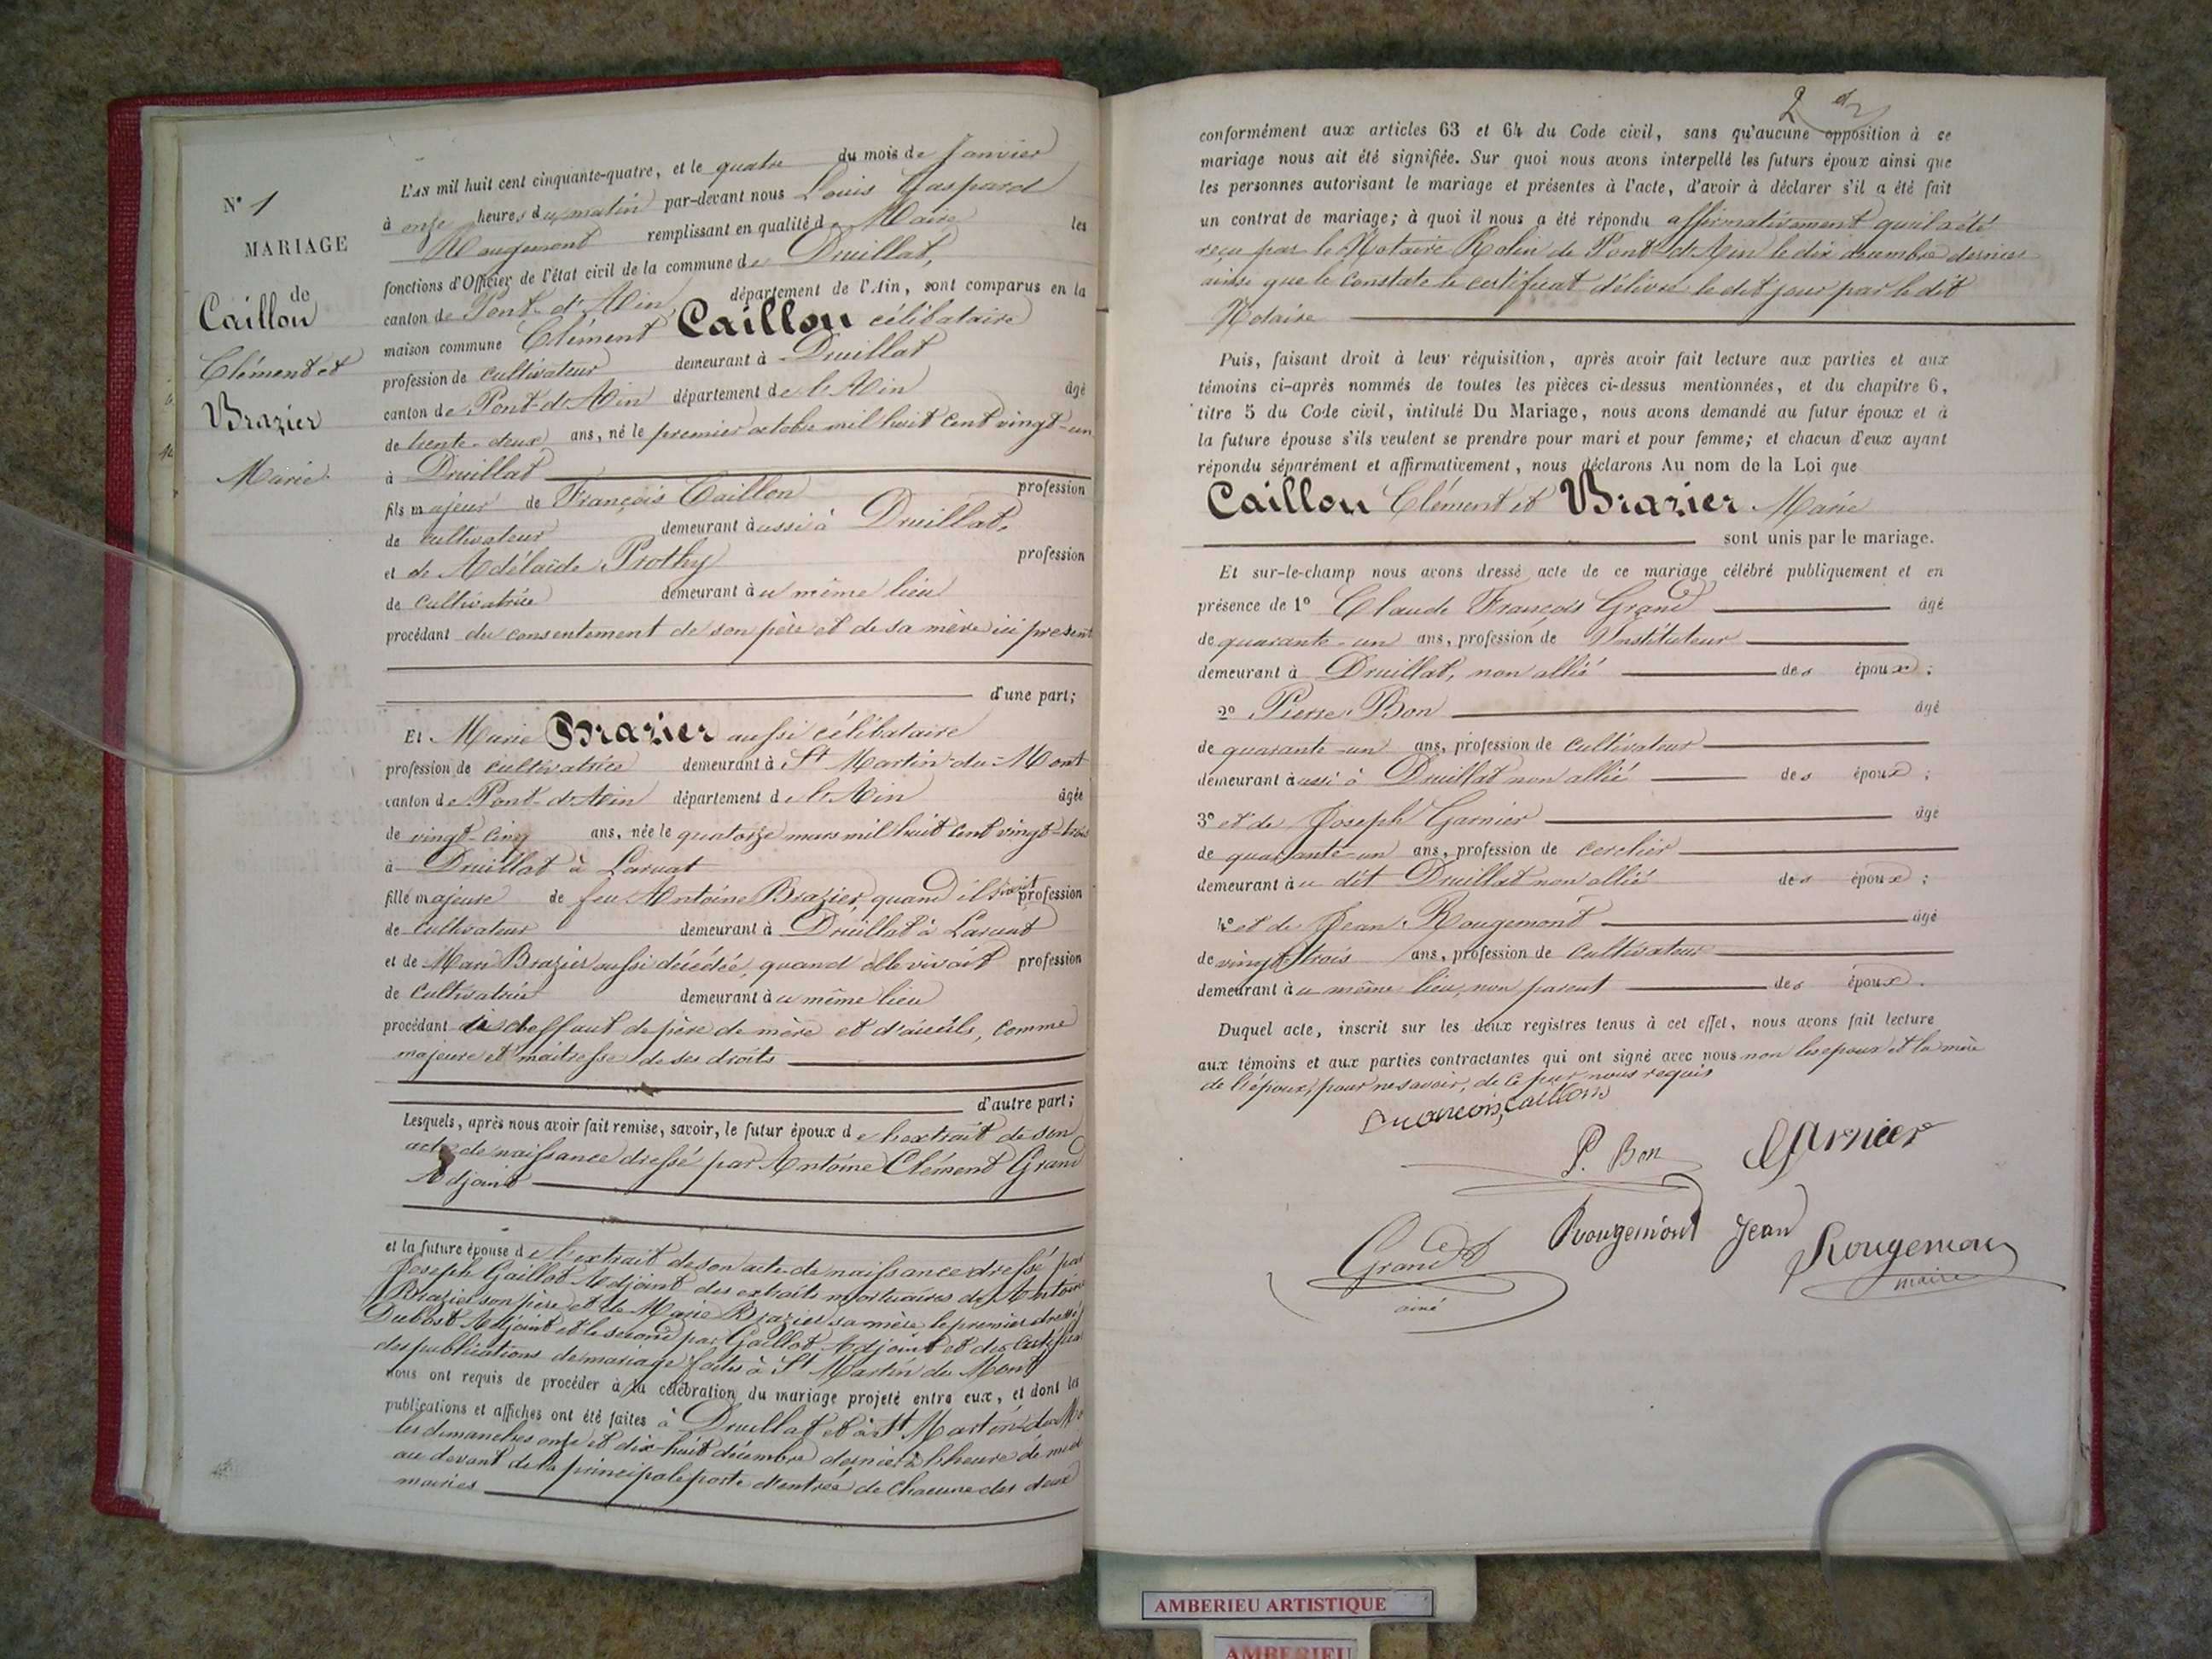 N° 1
MARIAGE
de
Caillon
Clément et
Brazier
Marie
L'AN mil huit cent cinquante-quatre, et le quatre du mois de Janvier
à onze heures du matin par-devant nous Louis Gaspard
Rougemont remplissant en qualité de Maire les
fonctions d'Officier de l'état civil de la commune de Druillat,
canton de Pont-d'Ain département de l'Ain, sont comparus en la
maison commune Clément Caillon célibataire
profession de cultivateur demeurant à Druillat
canton de Pont-d'Ain département de l'Ain âgé
de trente-deux ans, né le premier octobre mil huit cent vingt-un
à Druillat
fils majeur de François Caillon profession
de cultivateur demeurant aussi à Druillat,
et de Adélaïde Prothy profession
de cultivatrice demeurant au même lieu
procédant du consentement de son père et de sa mère ici présent
d'une part;
Et Marie Brazier aussi célibataire
profession de cultivatrice demeurant à St Martin-du-Mont
canton de Pont-d'Ain département de l'Ain âgée
de vingt-cinq ans, née le quatorze mars mil huit cent vingt-
à Druillat à
fille majeure de feu Antoine Brazier, quand il vivait profession
de cultivateur demeurant à Druillat à
et de Marie Brazier aussi décédée, quand elle vivait profession
de cultivatrice demeurant au même lieu
procédant deffaut de père de mère et d'aieuls, comme
majeure et maîtresse de ses droits
d'autre part;
Lesquels, après nous avoir fait remise, savoir, le futur époux de l'extrait de son
acte de naissance dressé par Antoine Clément Grand
Adjoint
et la future épouse de l'extrait de son acte de naissance dressé par
Joseph Gaillot Adjoint des extraits mortuaires de Antoine
Brazier son père et de Marie Brazier sa mère le premier dressé
Dubost Adjoint et le second par Gaillot Adjoint et des certificat
des publications de mariage faites à St Martin du Mont
nous ont requis de procéder à la célébration du mariage projeté entre eux, et dont les
publications et affiches ont été faites à Druillat et à St Martin-du-Mo
les dimanches onze et dix-huit décembre dernier à l'heure de midi
au devant de la principale porte d'entrée de chacune des deux
mairies
2
conformément aux articles 63 et 64 du Code civil, sans qu'aucune opposition à ce
mariage nous ait été signifiée. Sur quoi nous avons interpellé les futurs époux ainsi que
les personnes autorisant le mariage et présentes à l'acte, d'avoir à déclarer s'il a été fait
un contrat de mariage; à quoi il nous a été répondu affirmativement qu'il a été
reçu par le Notaire Rolin de Pont-d'Ain le dix décembre dernier
ainsi que le constate le certificat délivré le dit jour par le dit
Notaire
Puis, faisant droit à leur réquisition, après avoir fait lecture aux parties et aux
témoins ci-après nommés de toutes les pièces ci-dessus mentionnées, et du chapitre 6,
titre 5 du Code civil, intitulé Du Mariage, nous avons demandé au futur époux et à
la future épouse s'ils veulent se prendre pour mari et pour femme; et chacun d'eux ayant
répondu séparément et affirmativement, nous déclarons Au nom de la Loi que
Caillon Clément et Brazier Marie
sont unis par le mariage.
Et sur-le-champ nous avons dressé acte de ce mariage célébré publiquement et en
présence de 1° Claude François Grand âgé
de quarante-un ans, profession de Instituteur
demeurant à Druillat, non allié des époux;
2° Pierre Bon âgé
de quarante-un ans, profession de cultivateur
demeurant aussi à Druillat non allié des époux;
3° et de Joseph Garnier âgé
de quarante-un ans, profession de cerclier
demeurant au dit Druillat non allié des époux;
4° et de Jean Rougemont âgé
de vingt-trois ans, profession de cultivateur
demeurant au même lieu, non parent des époux.
Duquel acte, inscrit sur les deux registres tenus à cet effet, nous avons fait lecture
aux témoins et aux parties contractantes qui ont signé avec nous non les époux et la mère
de l'époux, pour ne savoir, de ce par nous requis
caillon
P. Bon Garnier
Grand Rougemont Jean Rougemont
ainé maire
AMBERIEU ARTISTIQUE
AMBERIEU